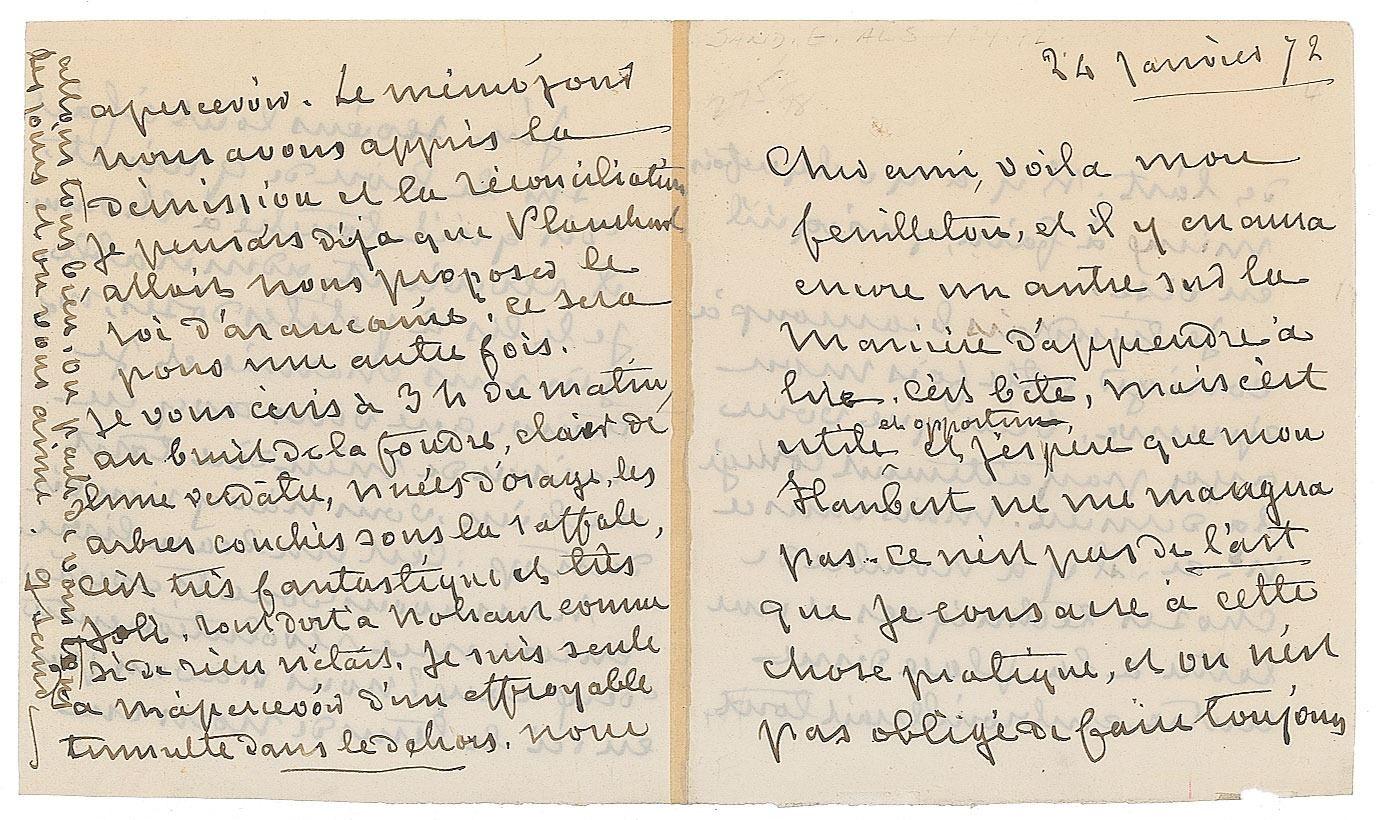 SAND. G. ALS 1.24.72
24 janvier 72
Cher ami, voila mon
feuilleton, et il y en aura
encore un autre sur la
manière d'apprendre à
lire. c'est bête, mais c'est
utile et opportun, et j'espère que mon
Flaubert ne me manquera
pas. ce n'est pas de l'art
que je consacre à cette
chose pratique, et on n'est
pas obligé de faire toujours
apercevoir. Le même jour
nous avons appris la
démission et la réconciliation
je pensais déja que Plauchut
allait nous proposer le
roi d'araucanie. ce sera
pour une autre fois.
je vous écris à 3 h du matin,
au bruit de la foudre, clair de
lune verdâtre, nuées d'orage, les
arbres couchés sous la raffale,
c'est très fantastique et très
joli. tout dort à Nohant comme
si de rien n'était. je suis seule
a m'apercevoir d'un effroyable
tumulte dans le dehors. nous
allons tous bien, on parle de vous tous
les jours et on vous aime. G Sand